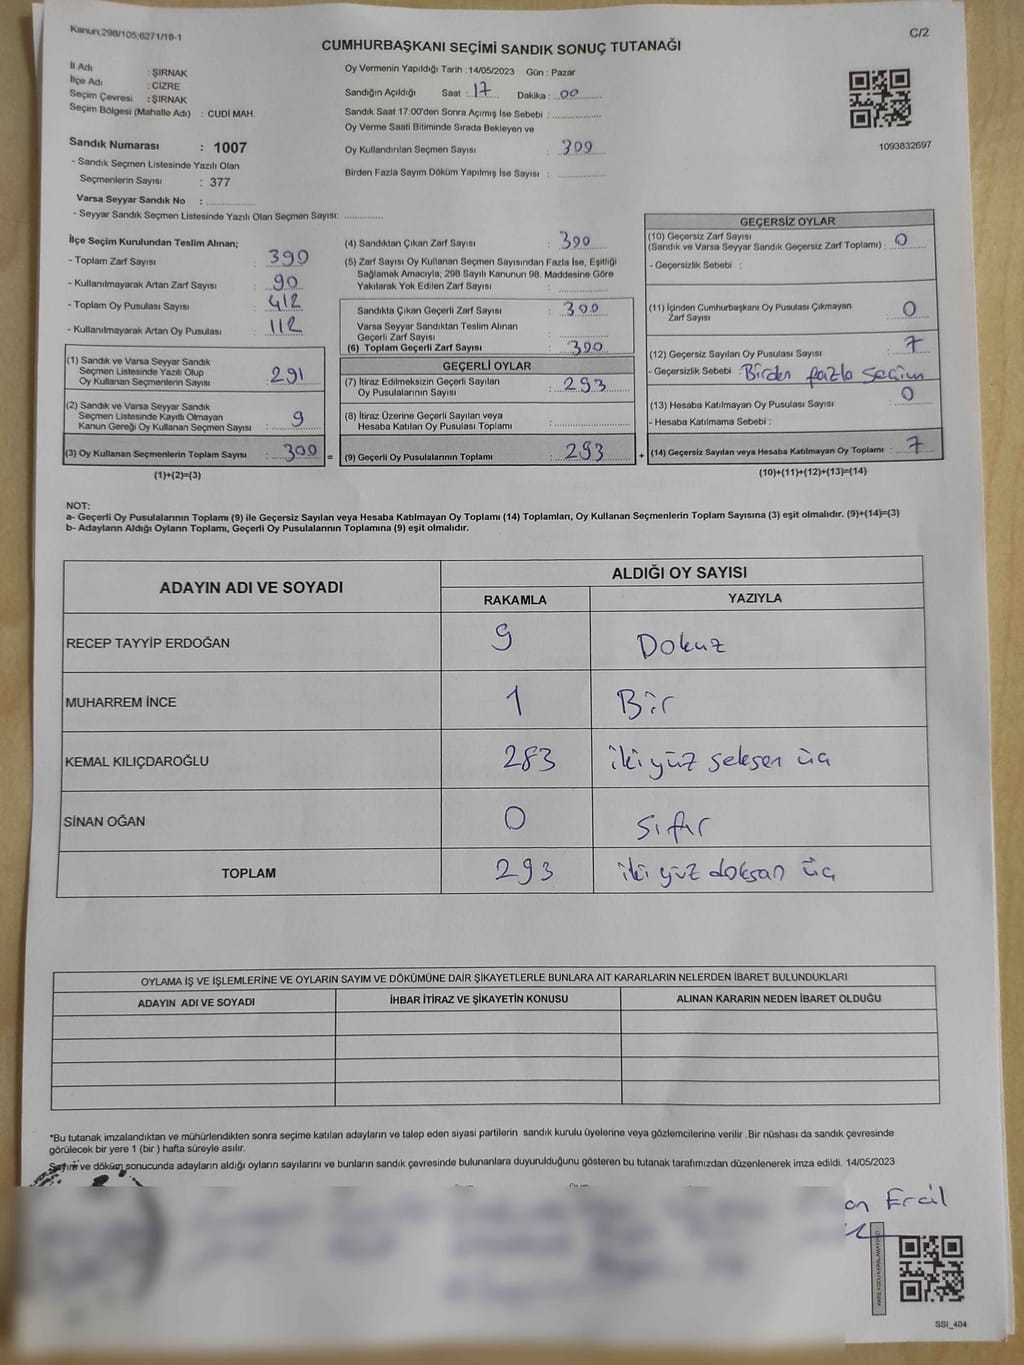 Kanun;298/105;6271/18-1
C/2
CUMHURBAŞKANI SEÇİMİ SANDIK SONUÇ TUTANAĞI
İl Adı : ŞIRNAK
İlçe Adı : CİZRE
Seçim Çevresi : ŞIRNAK
Seçim Bölgesi (Mahalle Adı) : CUDİ MAH.
Sandık Numarası : 1007
- Sandık Seçmen Listesinde Yazılı Olan
Seçmenlerin Sayısı : 377
Varsa Seyyar Sandık No :
- Seyyar Sandık Seçmen Listesinde Yazılı Olan Seçmen Sayısı:
Oy Vermenin Yapıldığı Tarih : 14/05/2023 Gün : Pazar
Sandığın Açıldığı Saat : 17 Dakika : 00
Sandık Saat 17:00'den Sonra Açımış İse Sebebi :
Oy Verme Saati Bitiminde Sırada Bekleyen ve
Oy Kullandırılan Seçmen Sayısı : 300
Birden Fazla Sayım Döküm Yapılmış İse Sayısı :
1093832697
İlçe Seçim Kurulundan Teslim Alınan;
- Toplam Zarf Sayısı : 390
- Kullanılmayarak Artan Zarf Sayısı : 90
- Toplam Oy Pusulası Sayısı : 412
- Kullanılmayarak Artan Oy Pusulası : 112
(1) Sandık ve Varsa Seyyar Sandık
Seçmen Listesinde Yazılı Olup
Oy Kullanan Seçmenlerin Sayısı : 291
(2) Sandık ve Varsa Seyyar Sandık
Seçmen Listesinde Kayıtlı Olmayan
Kanun Gereği Oy Kullanan Seçmen Sayısı : 9
(3) Oy Kullanan Seçmenlerin Toplam Sayısı : 300 =
(1)+(2)=(3)
(4) Sandıktan Çıkan Zarf Sayısı : 300
(5) Zarf Sayısı Oy Kullanan Seçmen Sayısından Fazla İse, Eşitliği
Sağlamak Amacıyla; 298 Sayılı Kanunun 98. Maddesine Göre
Yakılarak Yok Edilen Zarf Sayısı :
Sandıkta Çıkan Geçerli Zarf Sayısı : 300
Varsa Seyyar Sandıktan Teslim Alınan
Geçerli Zarf Sayısı :
(6) Toplam Geçerli Zarf Sayısı : 300
GEÇERLİ OYLAR
(7) İtiraz Edilmeksizin Geçerli Sayılan
Oy Pusulalarının Sayısı : 293
(8) İtiraz Üzerine Geçerli Sayılan veya
Hesaba Katılan Oy Pusulası Toplamı :
(9) Geçerli Oy Pusulalarının Toplamı : 293 +
GEÇERSİZ OYLAR
(10) Geçersiz Zarf Sayısı
(Sandık ve Varsa Seyyar Sandık Geçersiz Zarf Toplamı) : 0
- Geçersizlik Sebebi :
(11) İçinden Cumhurbaşkanı Oy Pusulası Çıkmayan
Zarf Sayısı : 0
(12) Geçersiz Sayılan Oy Pusulası Sayısı : 7
- Geçersizlik Sebebi : Birden fazla seçim
(13) Hesaba Katılmayan Oy Pusulası Sayısı : 0
- Hesaba Katılmama Sebebi :
(14) Geçersiz Sayılan veya Hesaba Katılmayan Oy Toplamı : 7
(10)+(11)+(12)+(13)=(14)
NOT:
a- Geçerli Oy Pusulalarının Toplamı (9) ile Geçersiz Sayılan veya Hesaba Katılmayan Oy Toplamı (14) Toplamları, Oy Kullanan Seçmenlerin Toplam Sayısına (3) eşit olmalıdır. (9)+(14)=(3)
b- Adayların Aldığı Oyların Toplamı, Geçerli Oy Pusulalarının Toplamına (9) eşit olmalıdır.
ADAYIN ADI VE SOYADI
ALDIĞI OY SAYISI
RAKAMLA YAZIYLA
RECEP TAYYİP ERDOĞAN 9 Dokuz
MUHARREM İNCE 1 Bir
KEMAL KILIÇDAROĞLU 283 iki yüz seksen üç
SİNAN OĞAN 0 Sıfır
TOPLAM 293 iki yüz doksan üç
OYLAMA İŞ VE İŞLEMLERİNE VE OYLARIN SAYIM VE DÖKÜMÜNE DAİR ŞİKAYETLERLE BUNLARA AİT KARARLARIN NELERDEN İBARET BULUNDUKLARI
ADAYIN ADI VE SOYADI İHBAR İTİRAZ VE ŞİKAYETİN KONUSU ALINAN KARARIN NEDEN İBARET OLDUĞU
*Bu tutanak imzalandıktan ve mühürlendikten sonra seçime katılan adayların ve talep eden siyasi partilerin sandık kurulu üyelerine veya gözlemcilerine verilir .Bir nüshası da sandık çevresinde
görülecek bir yere 1 (bir ) hafta süreyle asılır.
Sayım ve döküm sonucunda adayların aldığı oyların sayılarını ve bunların sandık çevresinde bulunanlara duyurulduğunu gösteren bu tutanak tarafımızdan düzenlenerek imza edildi. 14/05/2023
on Ercil
SSI_404